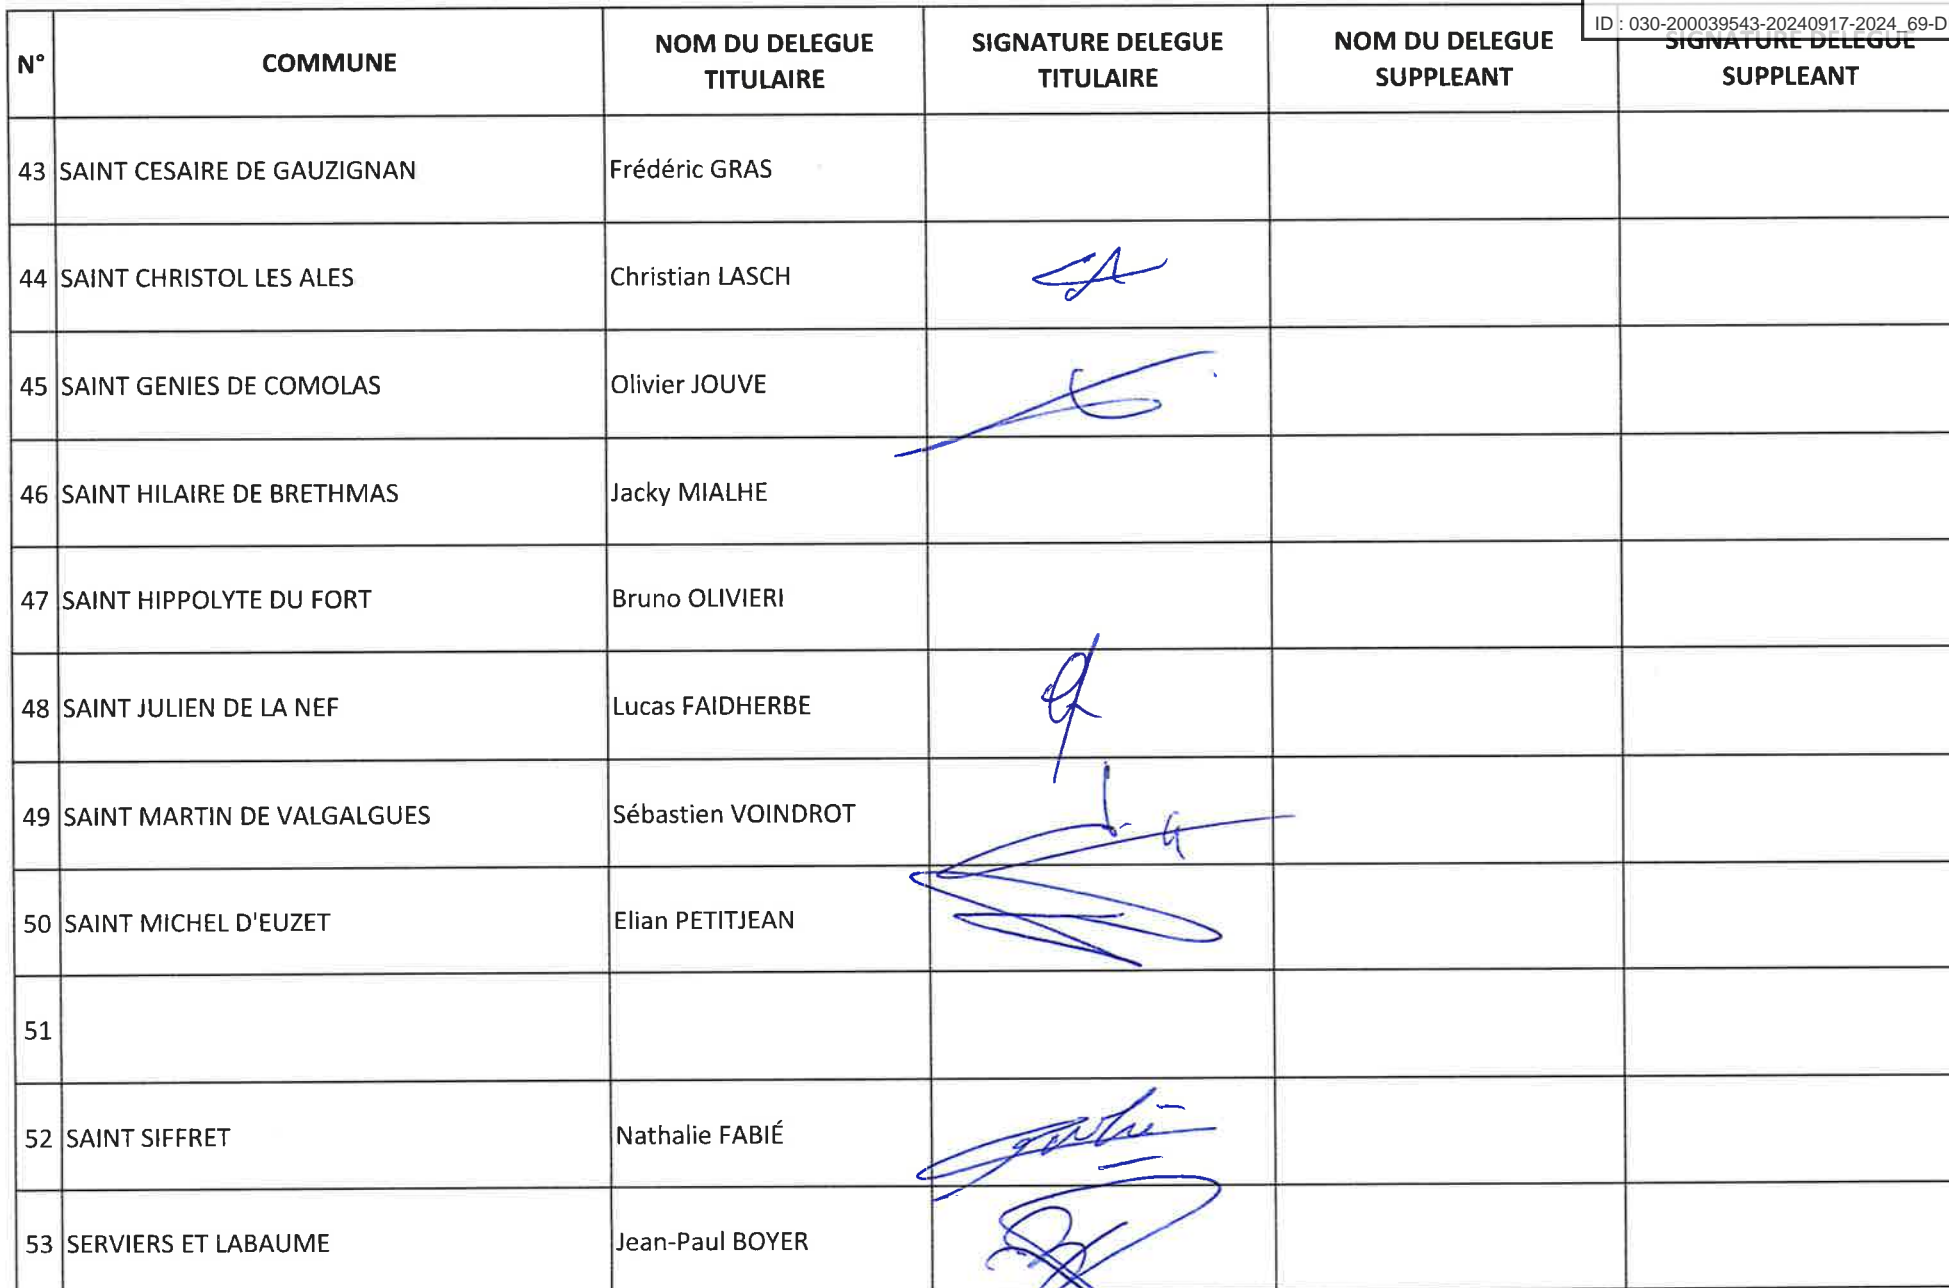 ID : 030-200039543-20240917-2024_69-D
N° COMMUNE NOM DU DELEGUE TITULAIRE SIGNATURE DELEGUE TITULAIRE NOM DU DELEGUE SUPPLEANT SIGNATURE DELEGUE SUPPLEANT
43 SAINT CESAIRE DE GAUZIGNAN Frédéric GRAS
44 SAINT CHRISTOL LES ALES Christian LASCH
45 SAINT GENIES DE COMOLAS Olivier JOUVE
46 SAINT HILAIRE DE BRETHMAS Jacky MIALHE
47 SAINT HIPPOLYTE DU FORT Bruno OLIVIERI
48 SAINT JULIEN DE LA NEF Lucas FAIDHERBE
49 SAINT MARTIN DE VALGALGUES Sébastien VOINDROT
50 SAINT MICHEL D'EUZET Elian PETITJEAN
51
52 SAINT SIFFRET Nathalie FABIÉ
53 SERVIERS ET LABAUME Jean-Paul BOYER